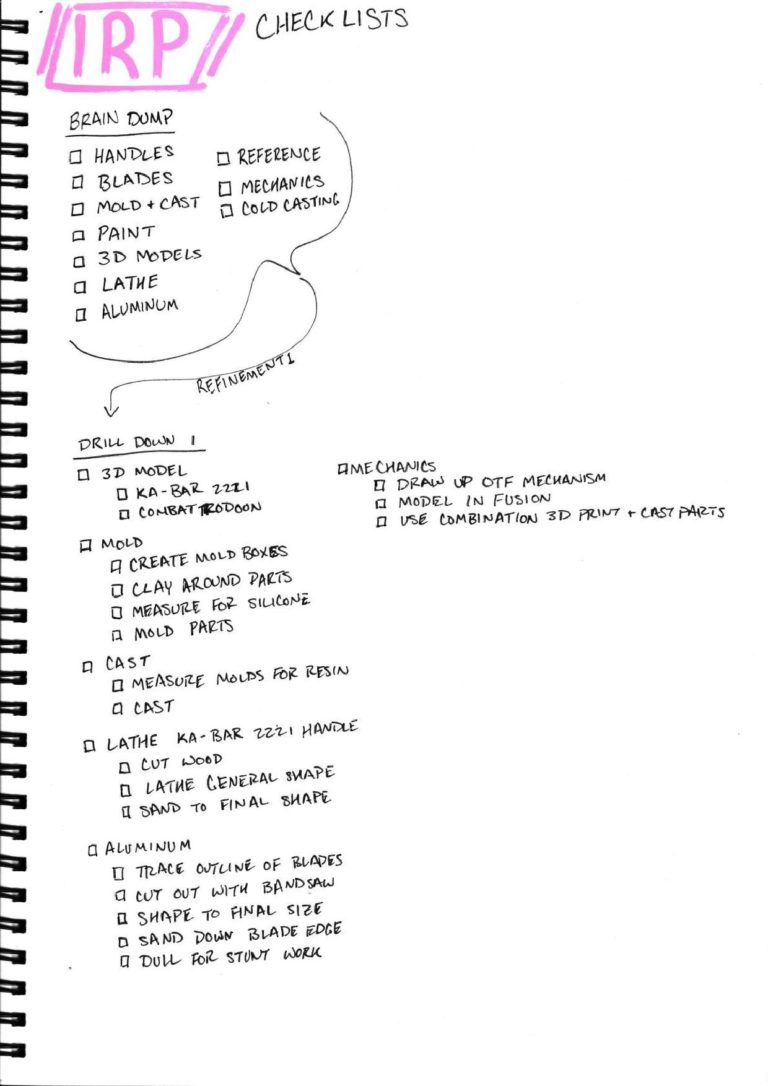 IRP
CHECKLISTS
BRAIN DUMP
HANDLES
BLADES
MOLD + CAST
PAINT
3D MODELS
LATHE
ALUMINUM
REFERENCE
MECHANICS
COLD CASTING
REFINEMENT 1
DRILL DOWN 1
3D MODEL
KA-BAR 2221
COMBAT TRODOON
MOLD
CREATE MOLD BOXES
CLAY AROUND PARTS
MEASURE FOR SILICONE
MOLD PARTS
CAST
MEASURE MOLDS FOR RESIN
CAST
LATHE KA-BAR 2221 HANDLE
CUT WOOD
LATHE GENERAL SHAPE
SAND TO FINAL SHAPE
ALUMINUM
TRACE OUTLINE OF BLADES
CUT OUT WITH BANDSAW
SHAPE TO FINAL SIZE
SAND DOWN BLADE EDGE
DULL FOR STUNT WORK
MECHANICS
DRAW UP OTF MECHANISM
MODEL IN FUSION
USE COMBINATION 3D PRINT + CAST PARTS